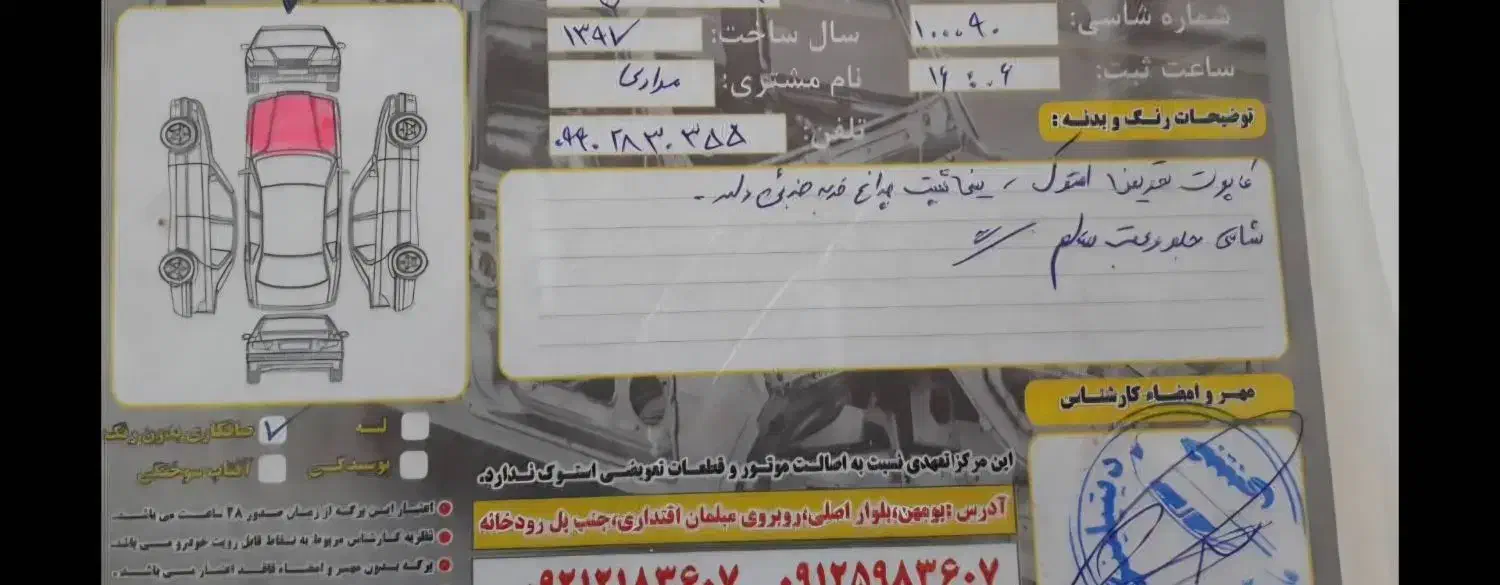 شماره شاسی: ۱۰۰۰۹۰
سال ساخت: ۱۳۹۷
ساعت ثبت: ۱۶:۰۶
نام مشتری: مرادی
تلفن: ۰۹۹۰۲۸۳۰۳۵۵
توضیحات رنگ و بدنه:
کاپوت تعویض استوک، سینی چراغ ضربه جزئی دارد.
شاسی جلو و عقب سالم
لــه
صافکاری بدون رنگ
پوسیدگی
آفتاب سوختگی
اعتبار این برگه از زمان صدور ۴۸ ساعت می باشد.
نظریه کارشناس مربوط به نقاط قابل رویت خودرو می باشد.
برگه بدون مهر و امضاء فاقد اعتبار می باشد.
مهر و امضاء کارشناس
این مرکز تعهدی نسبت به اصالت موتور و قطعات تعویضی استوک ندارد.
آدرس: بومهن، بلوار اصلی، روبروی مبلمان اقتداری، جنب پل رودخانه
۰۹۱۲۵۹۸۳۶۰۷ ۰۹۲۱۲۱۸۳۶۰۷